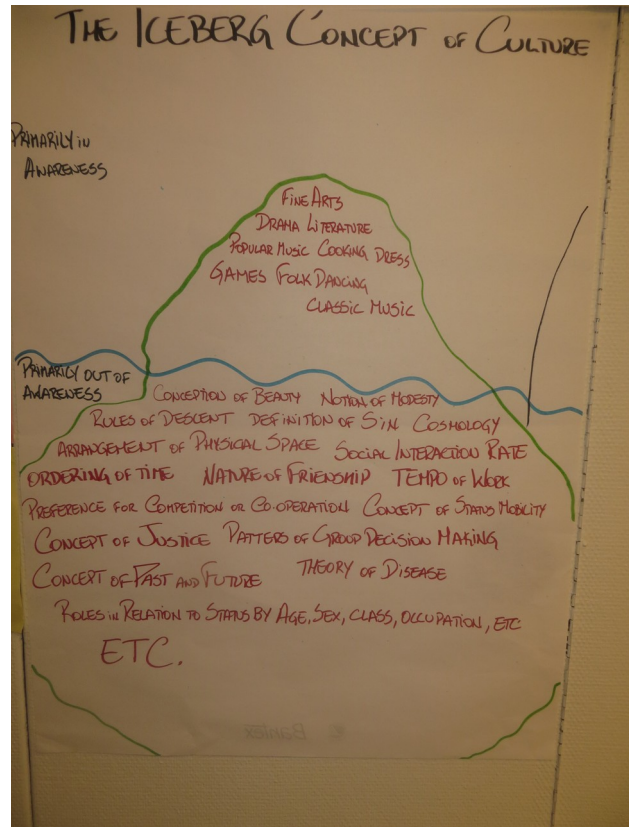 THE ICEBERG CONCEPT OF CULTURE
PRIMARILY IN
AWARENESS
FINE ARTS
DRAMA LITERATURE
POPULAR MUSIC COOKING DRESS
GAMES FOLK DANCING
CLASSIC MUSIC
PRIMARILY OUT OF
AWARENESS
CONCEPTION OF BEAUTY NOTION OF MODESTY
RULES OF DESCENT DEFINITION OF SIN COSMOLOGY
ARRANGEMENT OF PHYSICAL SPACE SOCIAL INTERACTION RATE
ORDERING OF TIME NATURE OF FRIENSHIP TEMPO OF WORK
PREFERENCE FOR COMPETITION OR CO-OPERATION CONCEPT OF STATUS MOBILITY
CONCEPT OF JUSTICE PATTERS OF GROUP DECISION MAKING
CONCEPT OF PAST AND FUTURE THEORY OF DISEASE
ROLES IN RELATION TO STATUS BY AGE, SEX, CLASS, OCCUPATION, ETC
ETC.
Bantex